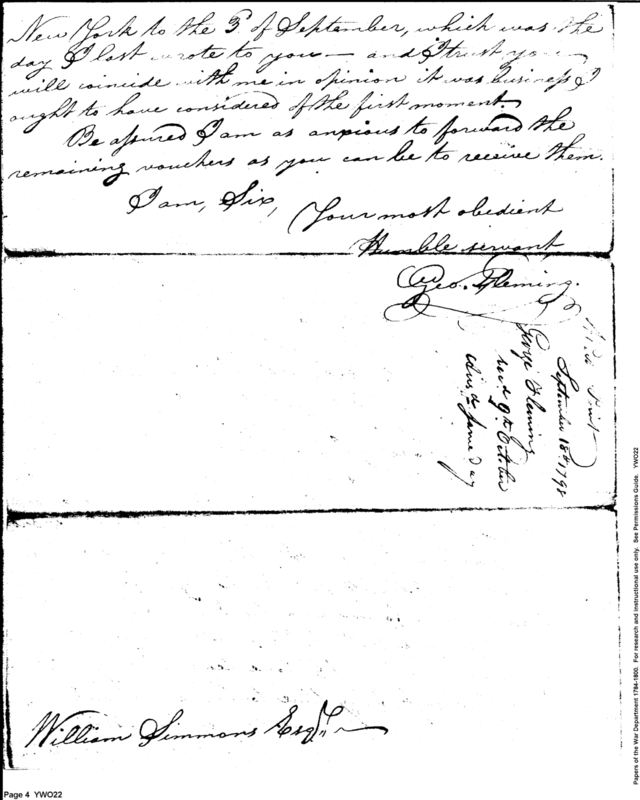 New York to the 3d of September, which was the
day I last wrote to you — and I trust you
will coincide with me in opinion it was business I
ought to have considered of the first moment
Be assured I am as anxious to forward the
remaining vouchers as you can be to receive them.
I am, Sir,
Your most obedient
Humble servant,
Geo. Fleming.
West Point
September 18th 1798
George Fleming
recd 9th October
Ansd same day
William Simmons Esqr.
Page 4 YWO22
Papers of the War Department 1784-1800. For research and instructional use only. See Permissions Guide. YWO22